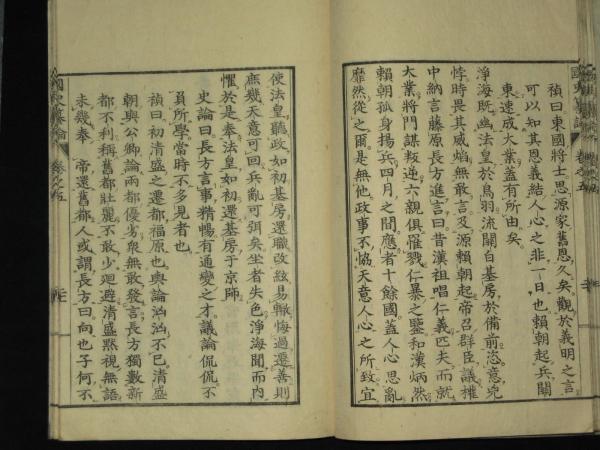 禎曰東國將士思源家舊恩久矣觀於義明之言
可以知其恩義結人心之非一日也賴朝起兵關
東速成大業蓋有所由矣
淨海既幽法皇於鳥羽流關白基房於備前恣意兇
悖時畏其威焰無敢言及源賴朝起帝召群臣議權
中納言藤原長方進言曰昔漢祖唱仁義匹夫而就
大業將門謀叛逆六親俱罹戮仁暴之鑒和漢炳然
賴朝孤身揚兵四月之間應者十餘國蓋人心思亂
靡然從之爾是無他政事不協天意人心之所致宜
使法皇聽政如初基房還職改絃易轍悔過遷善則
庶幾天意可回兵亂可弭矣坐者失色淨海聞而內
懼於是奉法皇如初還基房于京師
史論曰長方言事精暢有通變之才議論侃侃不
負所學當時不多見者也
禎曰初清盛之遷都福原也輿論洶洶不已清盛
朝與公卿論兩都優劣衆無敢發言長方獨數新
都不利稱舊都壯麗不敢少廻避清盛默視無語
未幾奉 帝還舊都人或謂長方曰向也子何不
國史纂論 卷之五